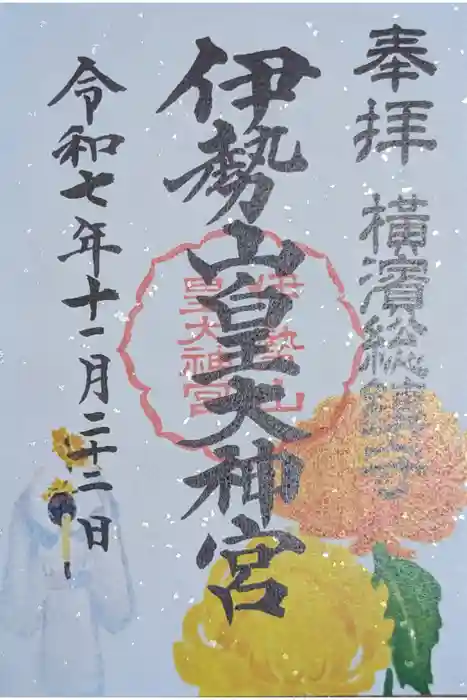 奉拝 横濱総鎮守
伊勢山皇大神宮
伊勢山
皇大神宮
令和七年十一月二十二日